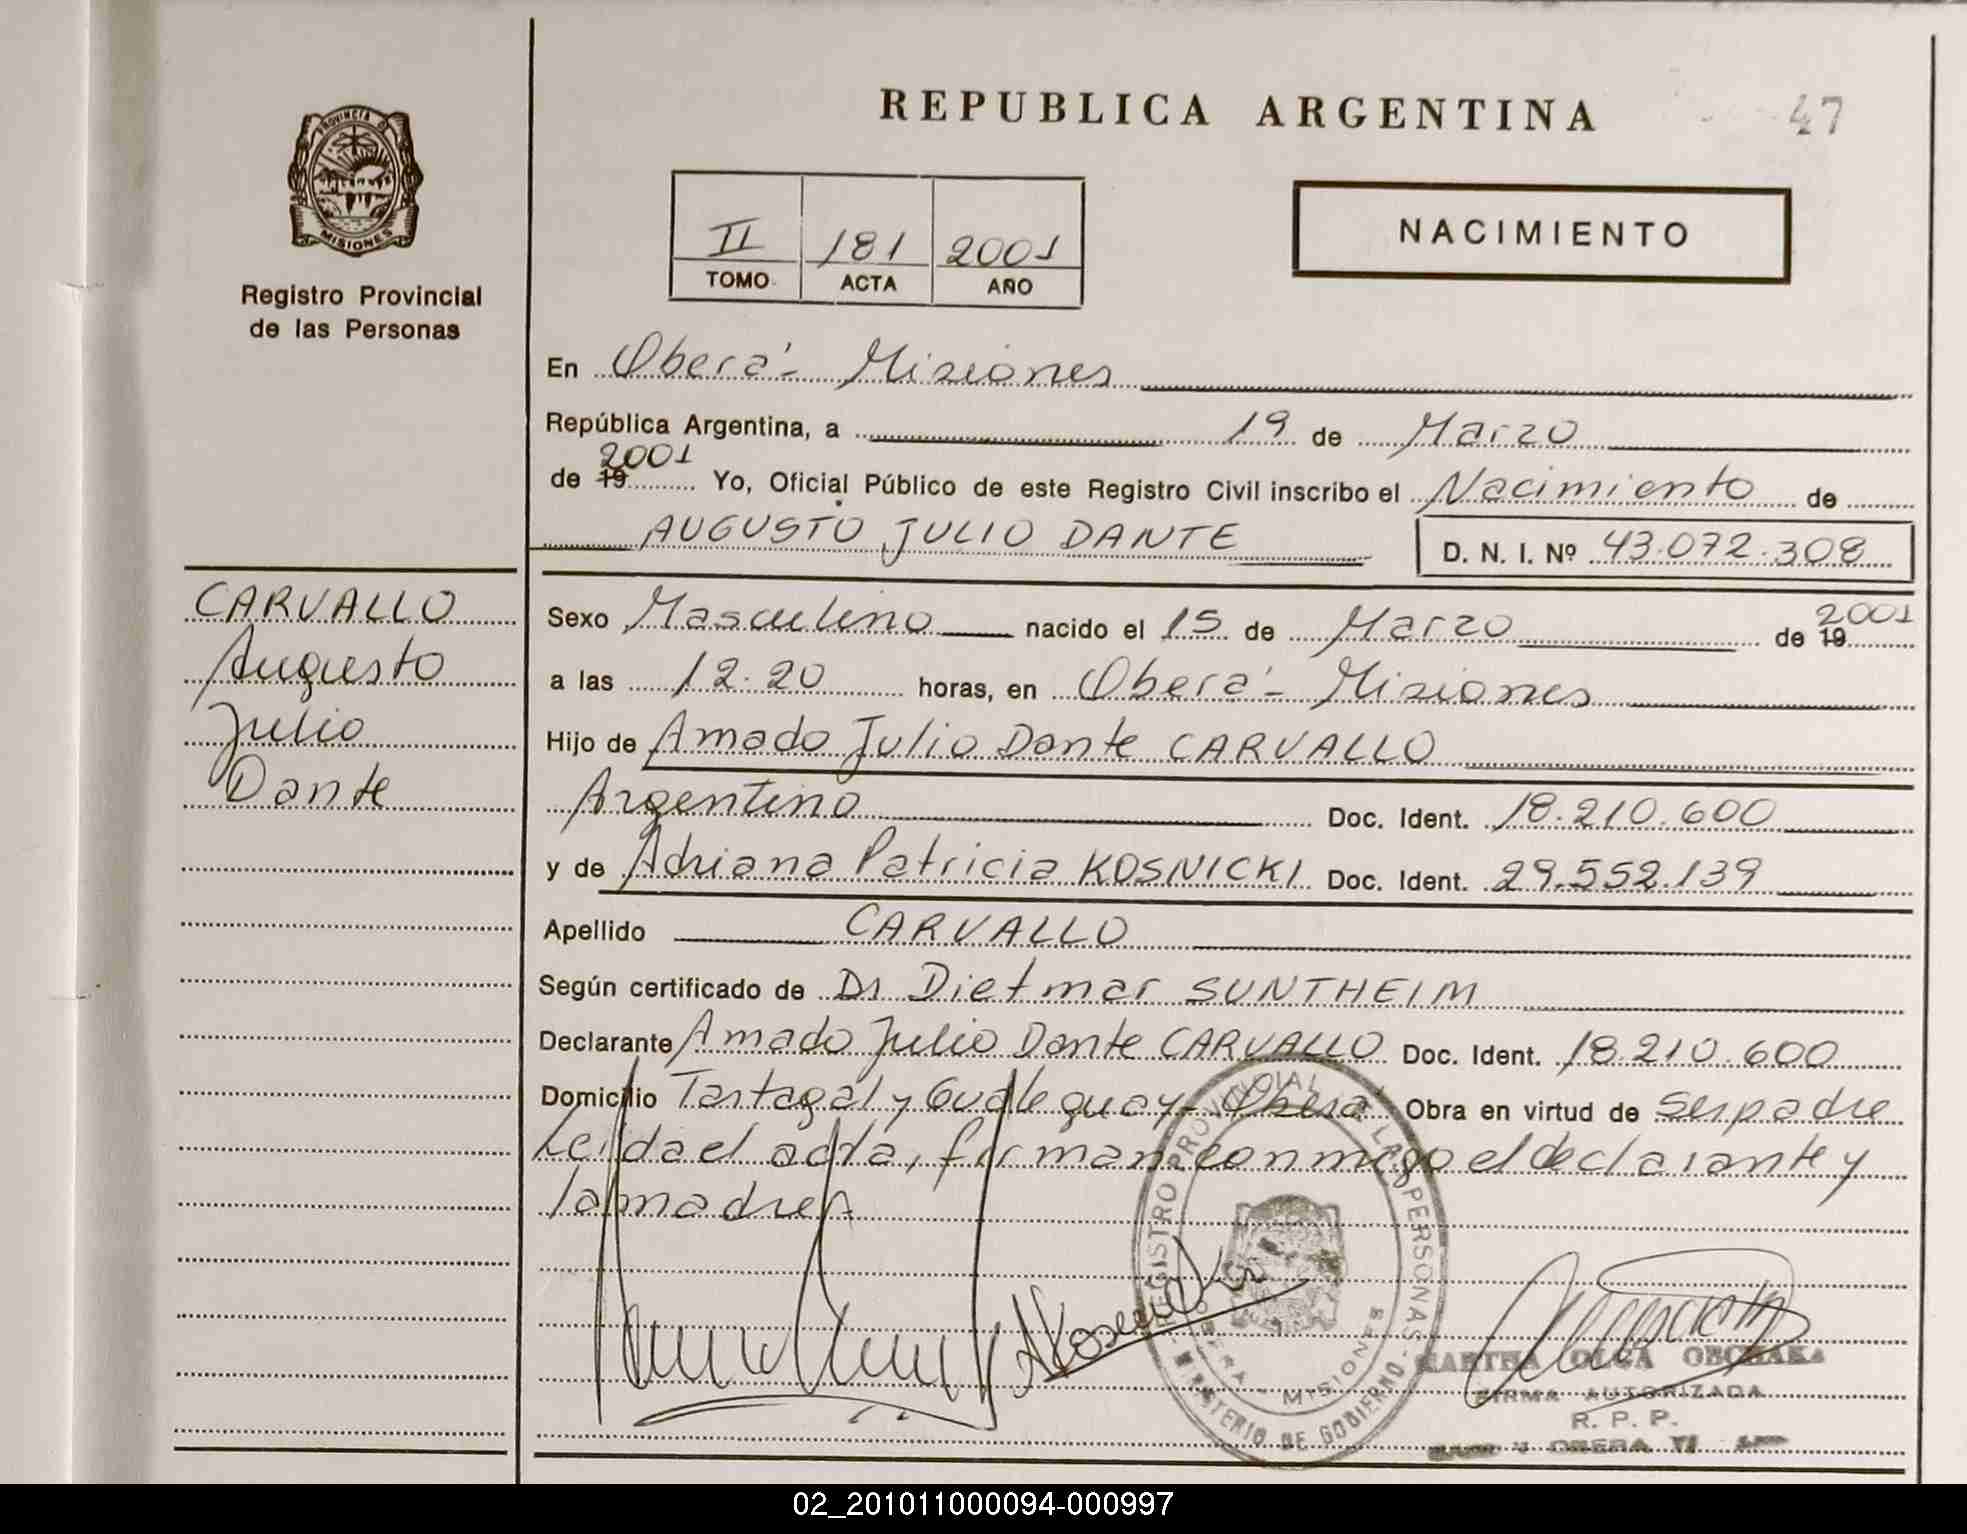 REPUBLICA ARGENTINA
47
PROVINCIA DE
MISIONES
Registro Provincial
de las Personas
II 181 2001
TOMO ACTA AÑO
NACIMIENTO
En Oberá - Misiones
República Argentina, a 19 de Marzo
2001
de 19 Yo, Oficial Público de este Registro Civil inscribo el Nacimiento de
AUGUSTO JULIO DANTE
D. N. I. Nº 43.072.308
CARVALLO
Augusto
Julio
Dante
Sexo Masculino nacido el 15 de Marzo de 19 2001
a las 12.20 horas, en Oberá - Misiones
Hijo de Amado Julio Dante CARVALLO
Argentino Doc. Ident. 18.210.600
y de Adriana Patricia KOSNICKI Doc. Ident. 29.552.139
Apellido CARVALLO
Según certificado de Dr Dietmar SUNTHEIM
Declarante Amado Julio Dante CARVALLO Doc. Ident. 18.210.600
Domicilio Tartagal y Gualeguay - Oberá Obra en virtud de ser padre
Leída el acta, firman conmigo el declarante y
la madre
REGISTRO PROVINCIAL DE LAS PERSONAS
OBERA - MISIONES
MINISTERIO DE GOBIERNO
MARTHA OLGA
FIRMA AUTORIZADA
R. P. P.
OBERA
02_201011000094-000997